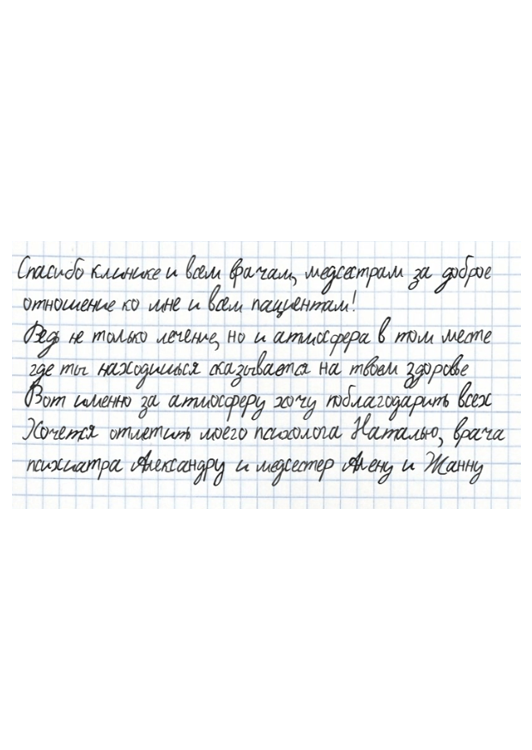 Спасибо клинике и всем врачам, медсестрам за доброе
отношение ко мне и всем пациентам!
Ведь не только лечение, но и атмосфера в том месте
где ты находишься сказывается на твоем здоровье
Вот именно за атмосферу хочу поблагодарить всех
Хочется отметить моего психолога Наталью, врача
психиатра Александру и медсестер Алену и Жанну